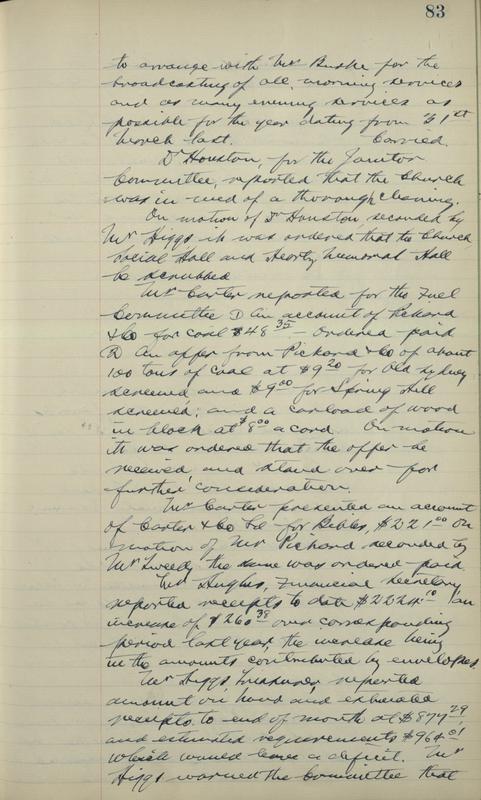 83
to arrange with Mr Burke for the
broadcasting of all morning services
and as many evening services as
possible for the year dating from 1st
March last. Carried.
Dr Houston, for the Janitor
Committee, reported that the Church
was in need of a thorough cleaning.
On motion of Dr Houston, seconded by
Mr Higgs it was ordered that the Church
Social Hall and Heartz Memorial Hall
be scrubbed
Mr Carter reported for the Fuel
Committee ① An account of Pickard
& Co for coal $48 35 – Ordered paid
② An offer from Pickard & Co of about
100 tons of coal at $9 20 for Old Sydney
screened and $9 00 for Spring Hill
screened; and a carload of wood
in block at $8 00 a cord On motion
it was ordered that the offer be
received and stand over for
further consideration.
Mr Carter presented an account
of Carter & Co Ltd for Bibles, $221 00 On
motion of Mr Pickard seconded by
Mr Tweedy the same was ordered paid.
Mr Hughes, Financial Secretary
reported receipts to date $2224 10 an
increase of $260 38 over corresponding
period last year, the increase being
in the amounts contributed by envelopes.
Mr Higgs Treasurer, reported
amount on hand and estimated
receipts to end of month at $877 29,
and estimated requirements $964 01
which would leave a deficit. Mr
Higgs warned the Committee that